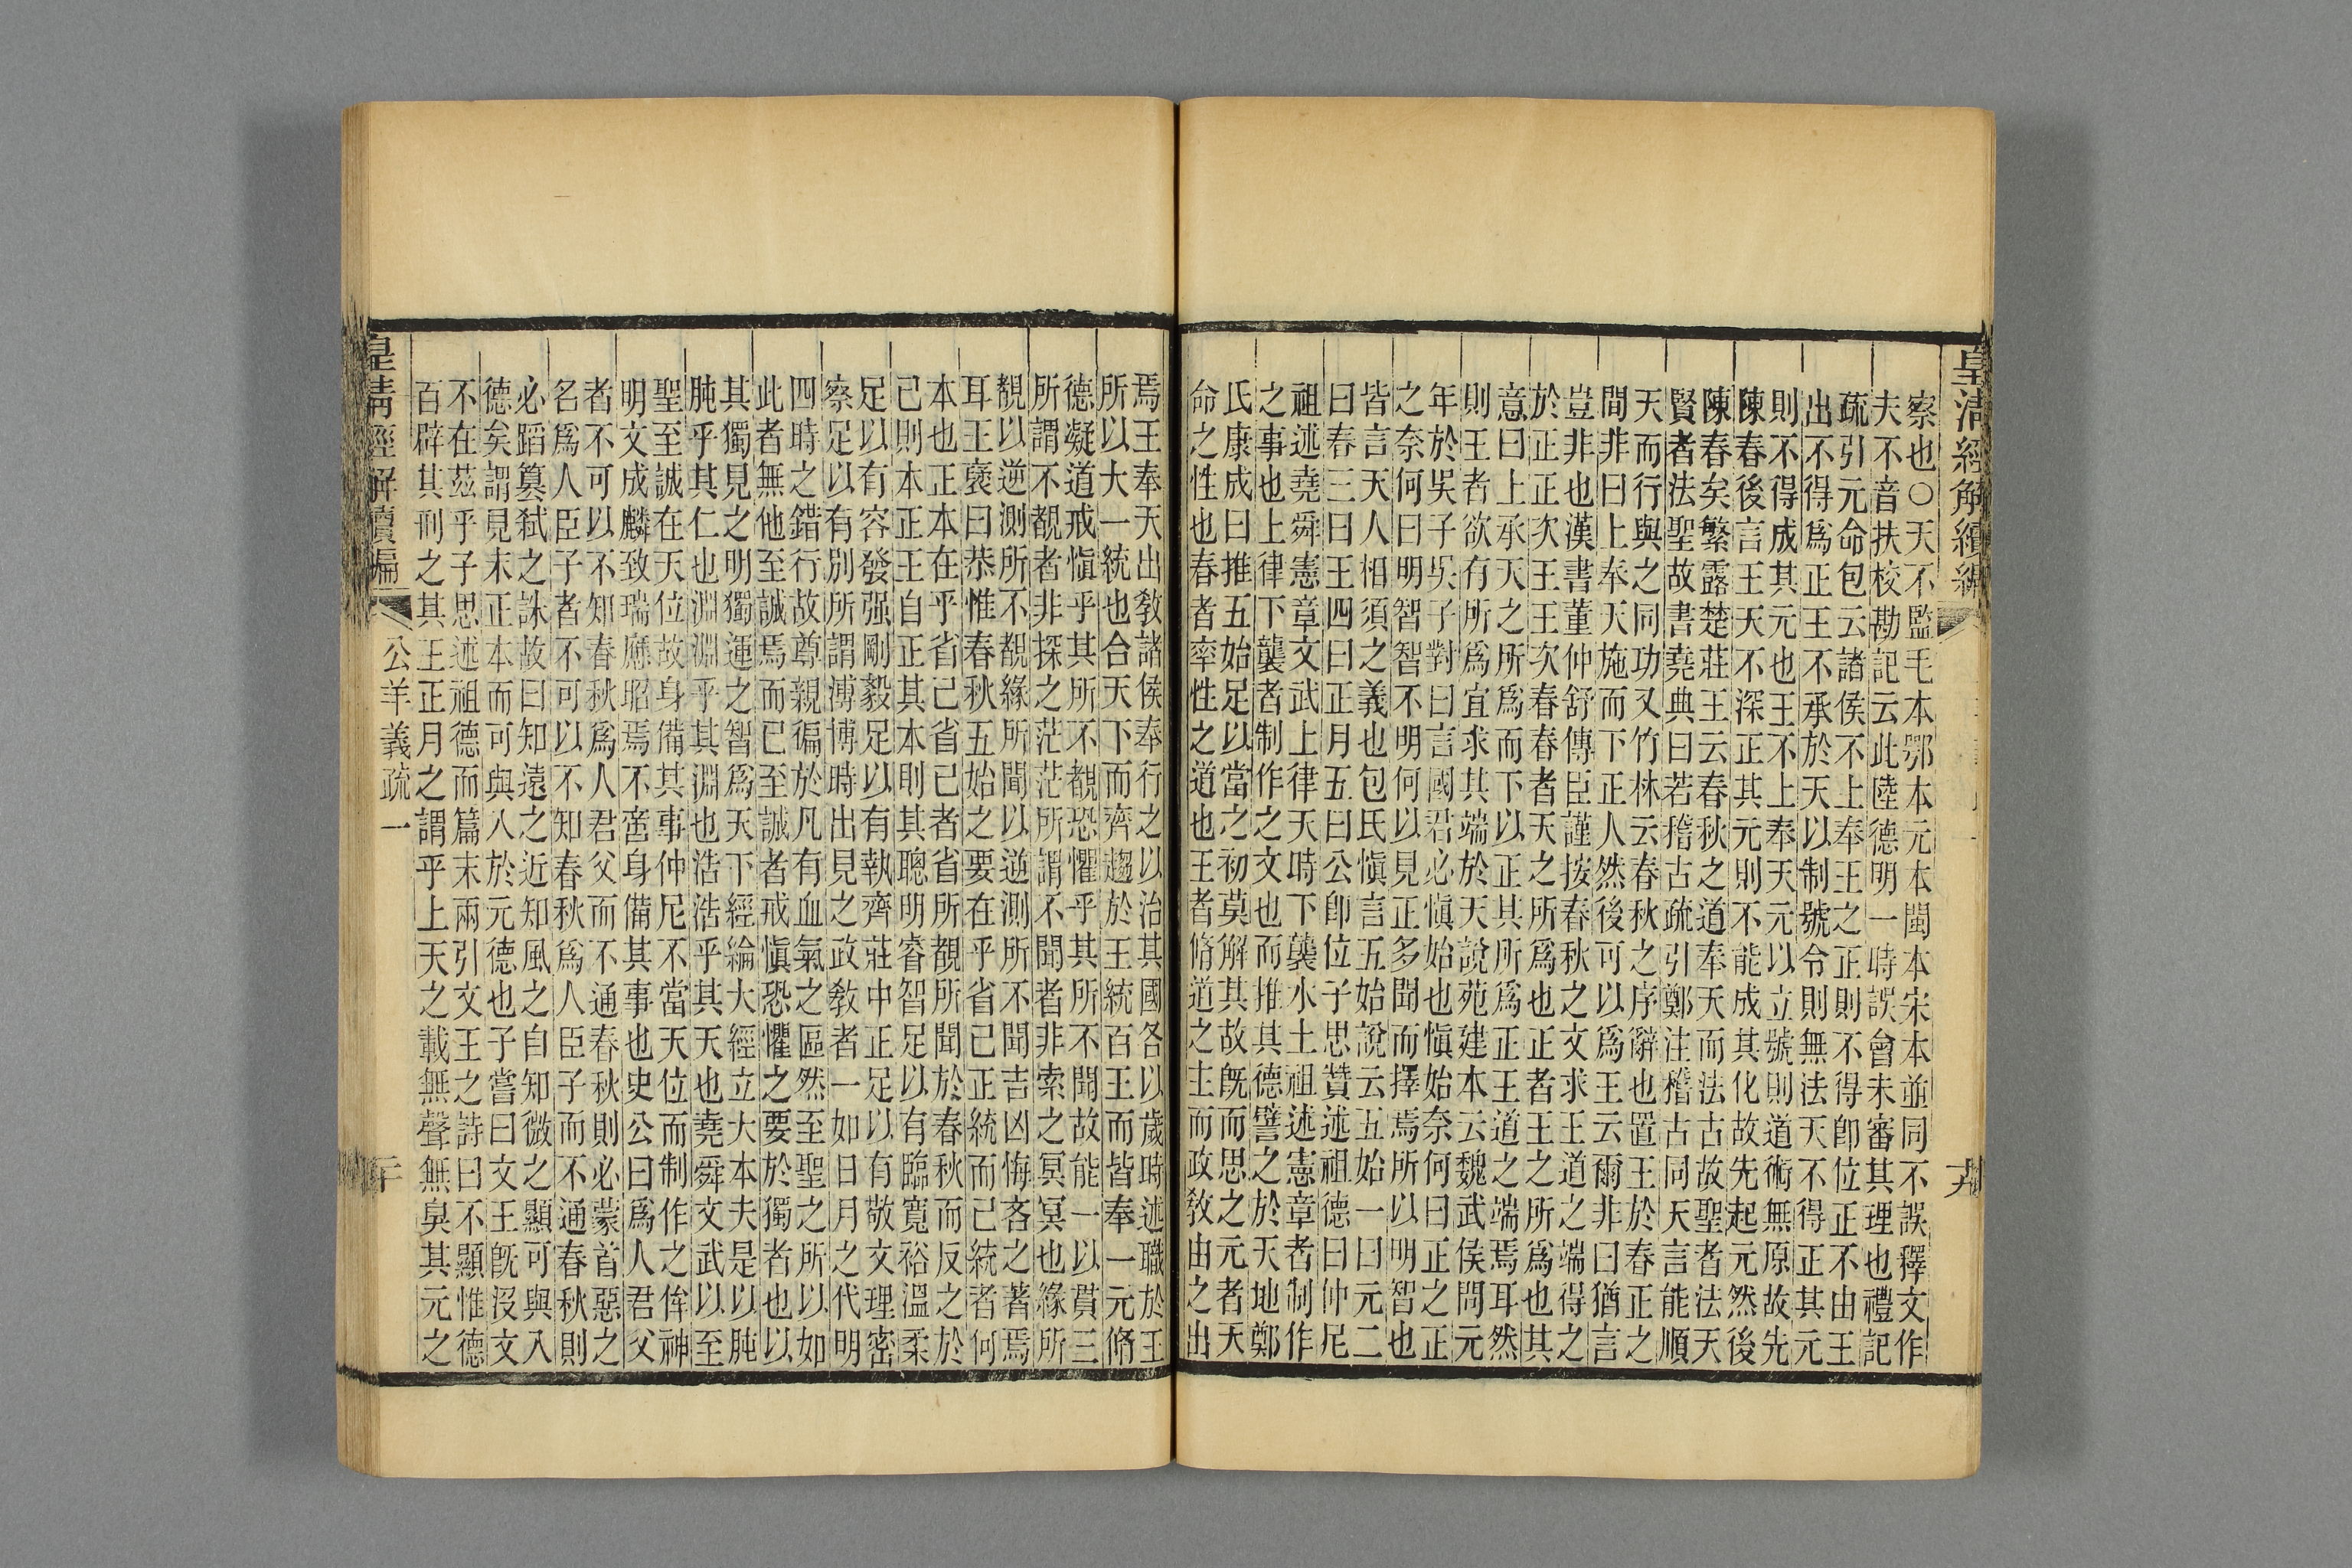 皇清經解續編
察也○天不監毛本鄂本元本閩本宋本並同不誤釋文作
夫不音扶校勘記云此陸德明一時誤會未審其理也禮記
疏引元命包云諸侯不上奉王之正則不得卽位正不由王
出不得爲正王不承於天以制號令則無法天不得正其元
則不得成其元也王不上奉天元以立號則道術無原故先
陳春後言王天不深正其元則不能成其化故先起元然後
陳春矣繁露楚莊王云春秋之道奉天而法古故聖者法天
賢者法聖故書堯典曰若稽古疏引鄭注稽古同天言能順
天而行與之同功又竹林云春秋之序辭也置王於春正之
間非曰上奉天施而下正人然後可以爲王云爾非曰猶言
豈非也漢書董仲舒傳臣謹按春秋之文求王道之端得之
於正正次王王次春春者天之所爲也正者王之所爲也其
意曰上承天之所爲而下以正其所爲正王道之端焉耳然
則王者欲有所爲宜求其端於天說苑建本云魏武侯問元
年於吳子吳子對曰言國君必愼始也愼始奈何曰正之正
之奈何曰明智智不明何以見正多聞而擇焉所以明智也
皆言天人相須之義也包氏愼言五始說云五始一曰元二
曰春三曰王四曰正月五曰公卽位子思贊述祖德曰仲尼
祖述堯舜憲章文武上律天時下襲水土祖述憲章者制作
之事也上律下襲者制作之文也而推其德譬之於天地鄭
氏康成曰推五始足以當之初莫解其故旣而思之元者天
命之性也春者率性之道也王者脩道之主而政敎由之出
焉王奉天出敎諸侯奉行之以治其國各以歲時述職於王
所以大一統也合天下而齊趨於王統百王而皆奉一元脩
德凝道戒愼乎其所不覩恐懼乎其所不聞故能一以貫三
所謂不覩者非探之茫茫所謂不聞者非索之冥冥也緣所
覩以逆測所不覩緣所聞以逆測所不聞吉凶悔吝之著焉
耳王襃曰恭惟春秋五始之要在乎省己正統而己統者何
本也正本在乎省己省己者省所覩所聞於春秋而反之於
己則本正王自正其本則其聰明睿智足以有臨寬裕溫柔
足以有容發强剛毅足以有執齊莊中正足以有敬文理密
察足以有別所謂溥博時出見之政敎者一如日月之代明
四時之錯行故尊親徧於凡有血氣之區然至聖之所以如
此者無他至誠焉而已至誠者戒愼恐懼之要於獨者也以
其獨見之明獨運之智爲天下經綸大經立大本夫是以肫
肫乎其仁也淵淵乎其淵也浩浩乎其天也堯舜文武以至
聖至誠在天位故身備其事仲尼不當天位而制作之侔神
明文成麟致瑞應昭焉不啻身備其事也史公曰爲人君父
者不可以不知春秋爲人君父而不通春秋則必蒙首惡之
名爲人臣子者不可以不知春秋爲人臣子而不通春秋則
必蹈篡弑之誅故曰知遠之近知風之自知微之顯可與入
德矣謂見末正本而可與入於元德也子嘗曰文王旣沒文
不在茲乎子思述祖德而篇末兩引文王之詩曰不顯惟德
百辟其刑之其王正月之謂乎上天之載無聲無臭其元之
皇清經解續編
公羊義疏一